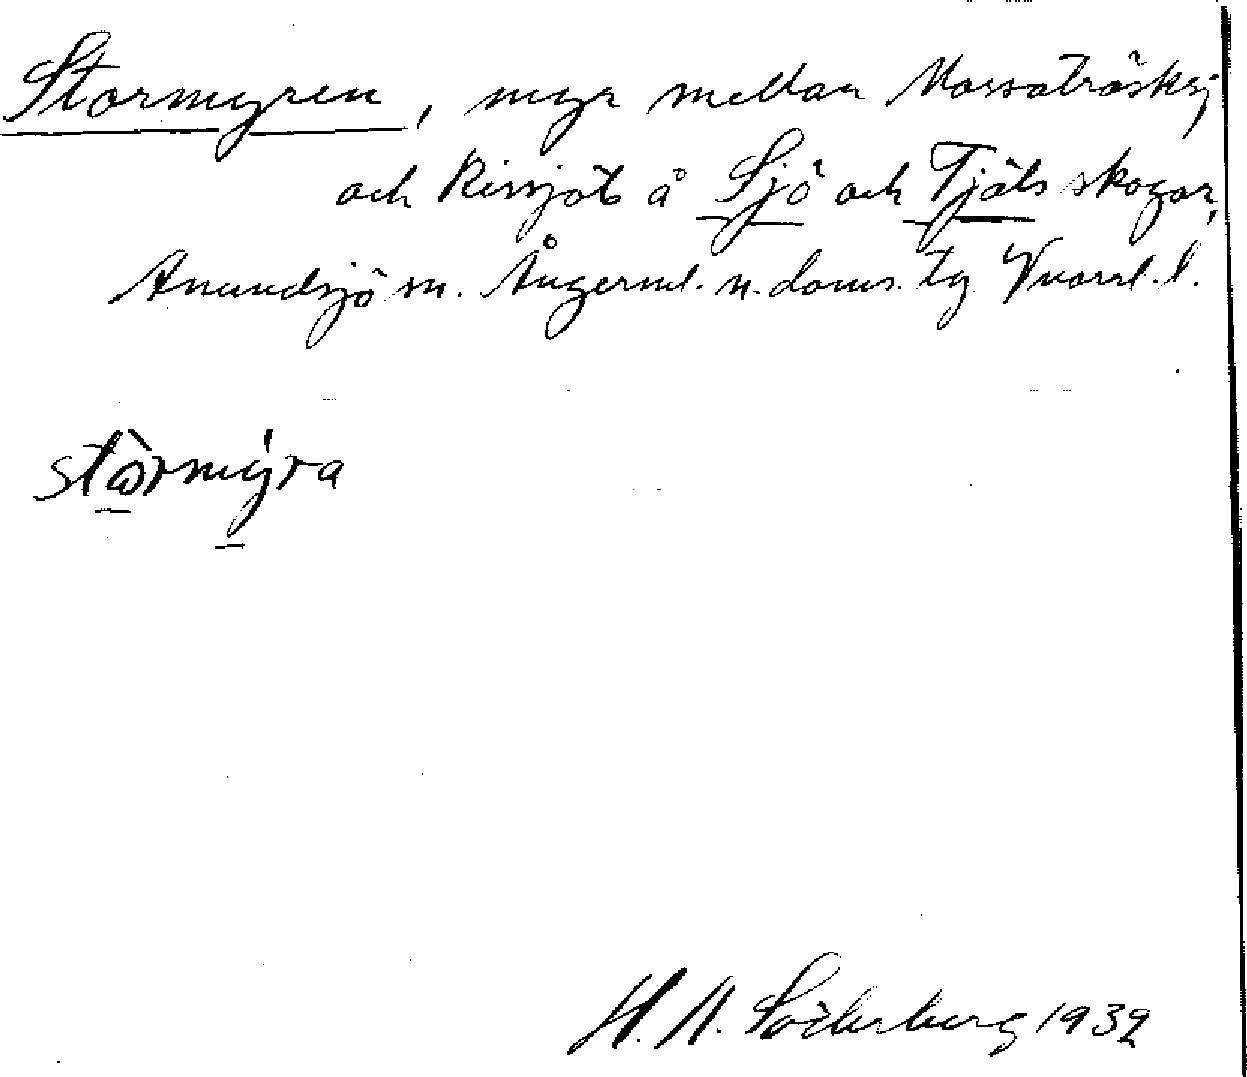 Stormyren, myr mellan Mossaträsksj
och Rissjöb å Sjö och Tjäls skogar,
Anundsjö sn. Ångerml. n. doms. tg Vnorrl. l.
stòrmýra
H. M. Söderberg 1932